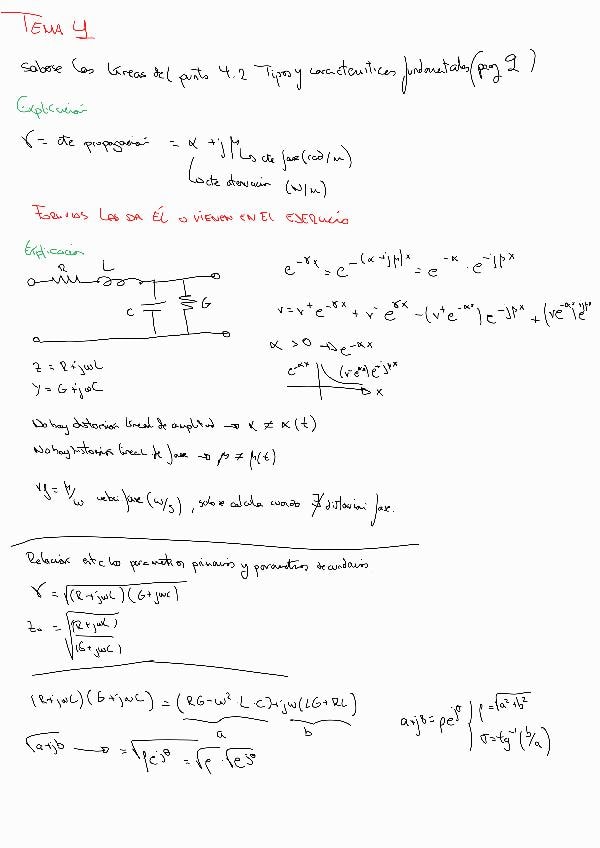 TEMA 4
saberse las líneas del punto 4.2 Tipos y características fundamentales (pag 9)
Explicación
γ = cte propagación = α + jβ → cte fase (rad/m)
↳ cte atenuación (N/m)
FORMULAS LAS DA ÉL O VIENEN EN EL EJERCICIO
Explicación
R L
C G
Z = R + jωL
Y = G + jωC
e^-γx = e^-(α+jβ)x = e^-α · e^-jβx
v = v⁺e^-γx + v⁻e^γx = (v⁺e^-αx) e^-jβx + (v⁻e^-αx) e^jβx
α > 0 → e^-αx
e^-αx
x
No hay distorsión lineal de amplitud → α ≠ α(t)
No hay distorsión lineal de fase → β ≠ β(t)
vf = β/ω veloc fase (m/s), solo se calcula cuando ∄ distorsión fase.
Relación entre los parámetros primarios y parámetros secundarios
γ = √(R+jωL)(G+jωC)
Z₀ = √(R+jωL)/(G+jωC)
(R+jωL)(G+jωC) = (RG - ω² L·C) + jω(LG+RC)
a b
√a+jb → = √ρe^jθ = √ρ · √e^jθ
a+jb = ρe^jθ
ρ = √a²+b²
θ = tg⁻¹(b/a)